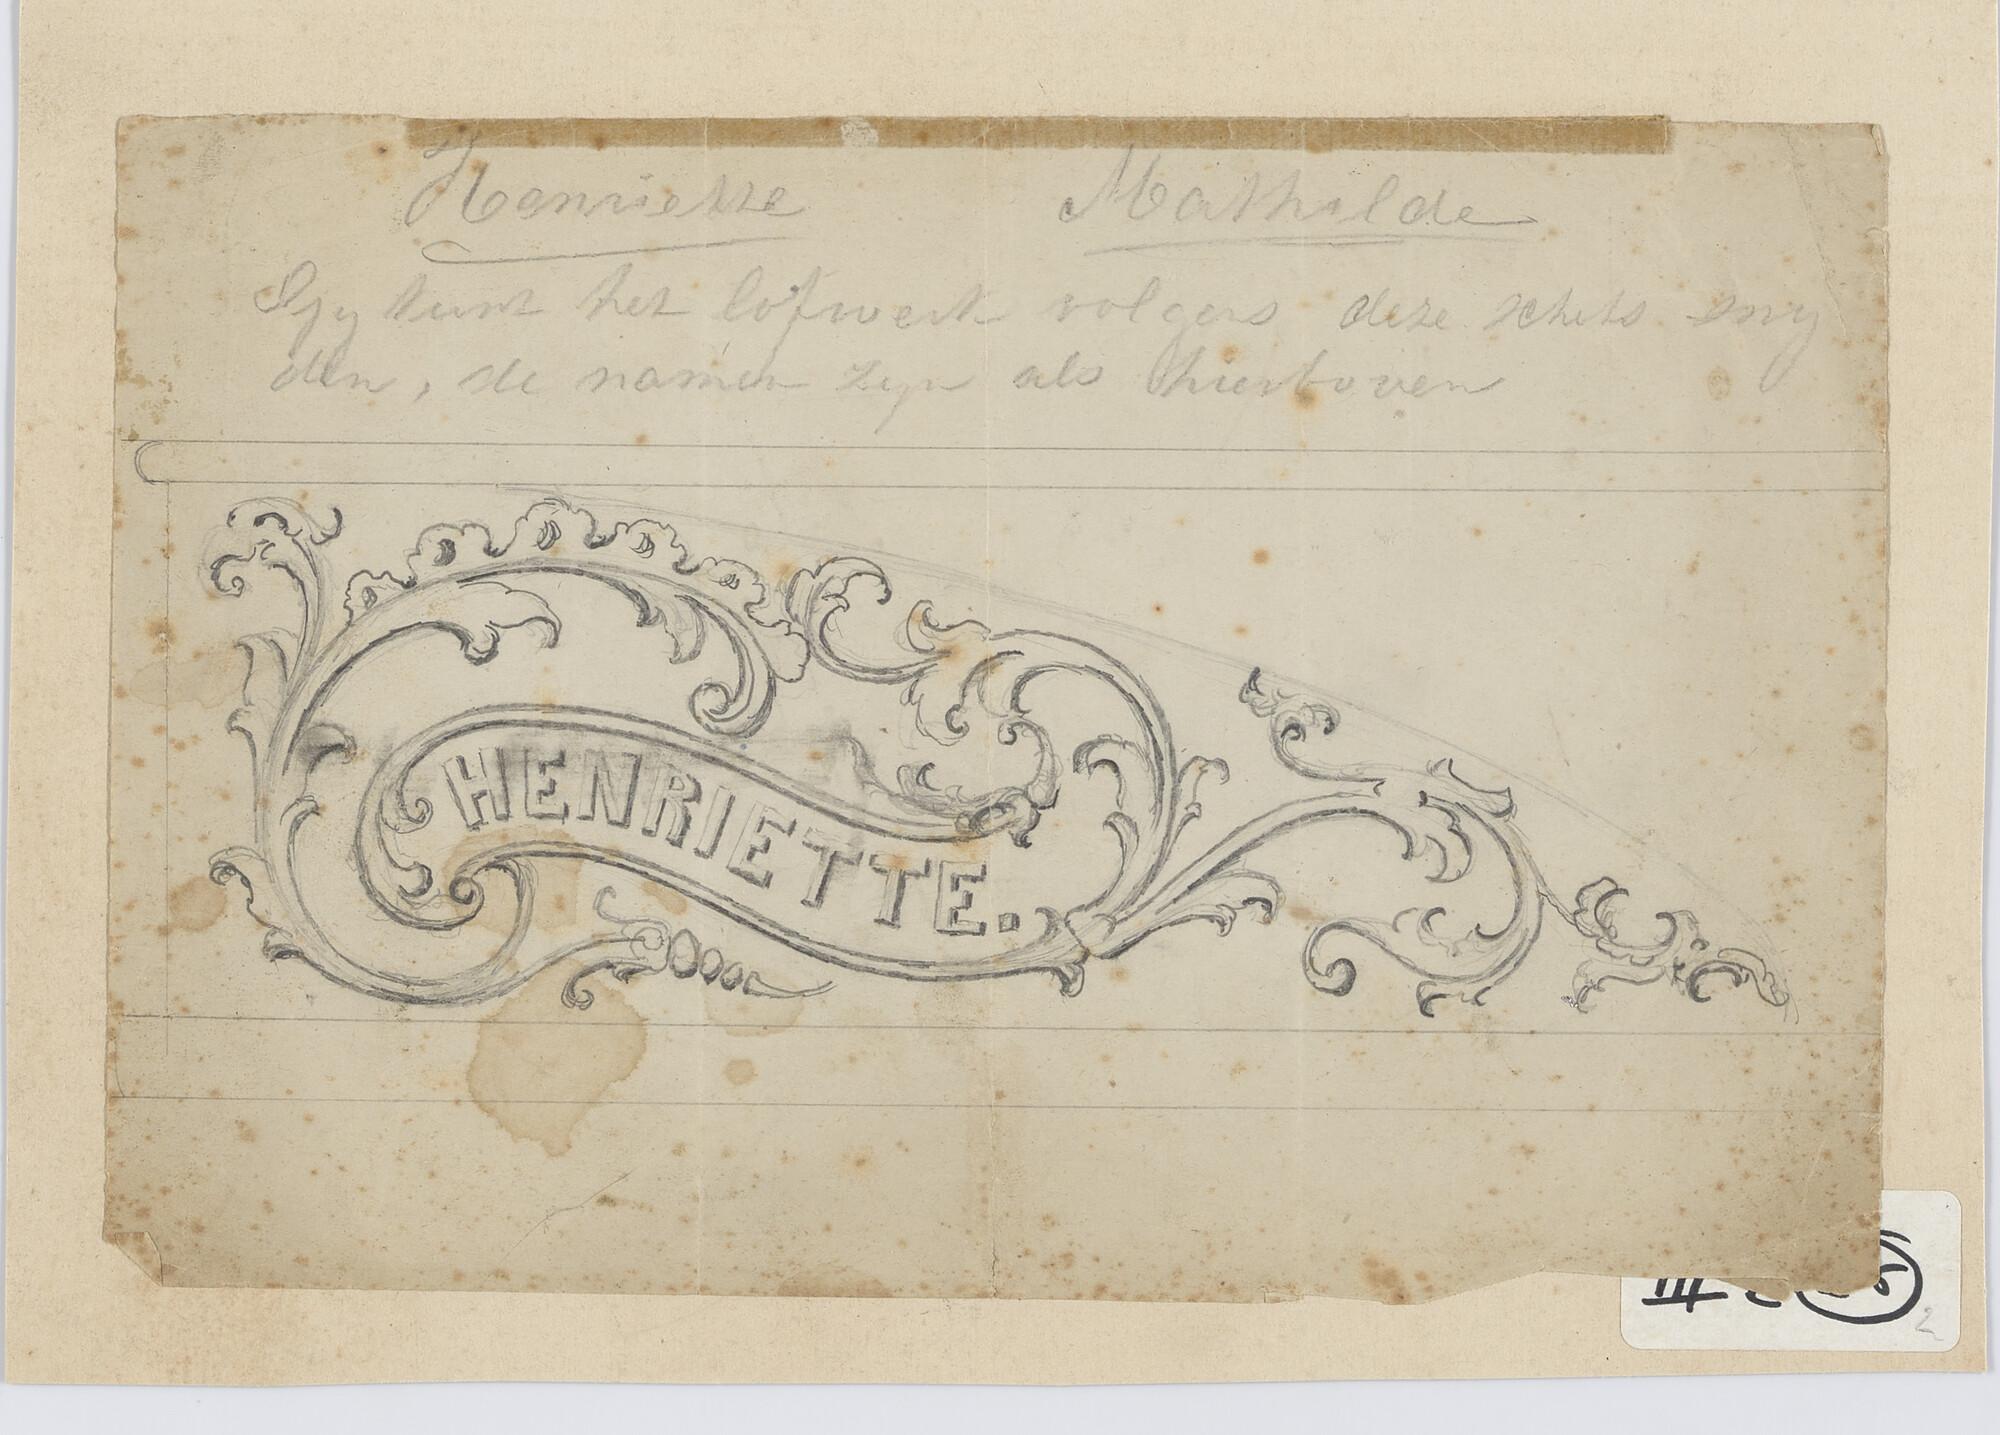 Henriette Mathilde
Gy kunt het lofwerk volgens deze schets sny
den, de namen zyn als hierboven
HENRIETTE.
2